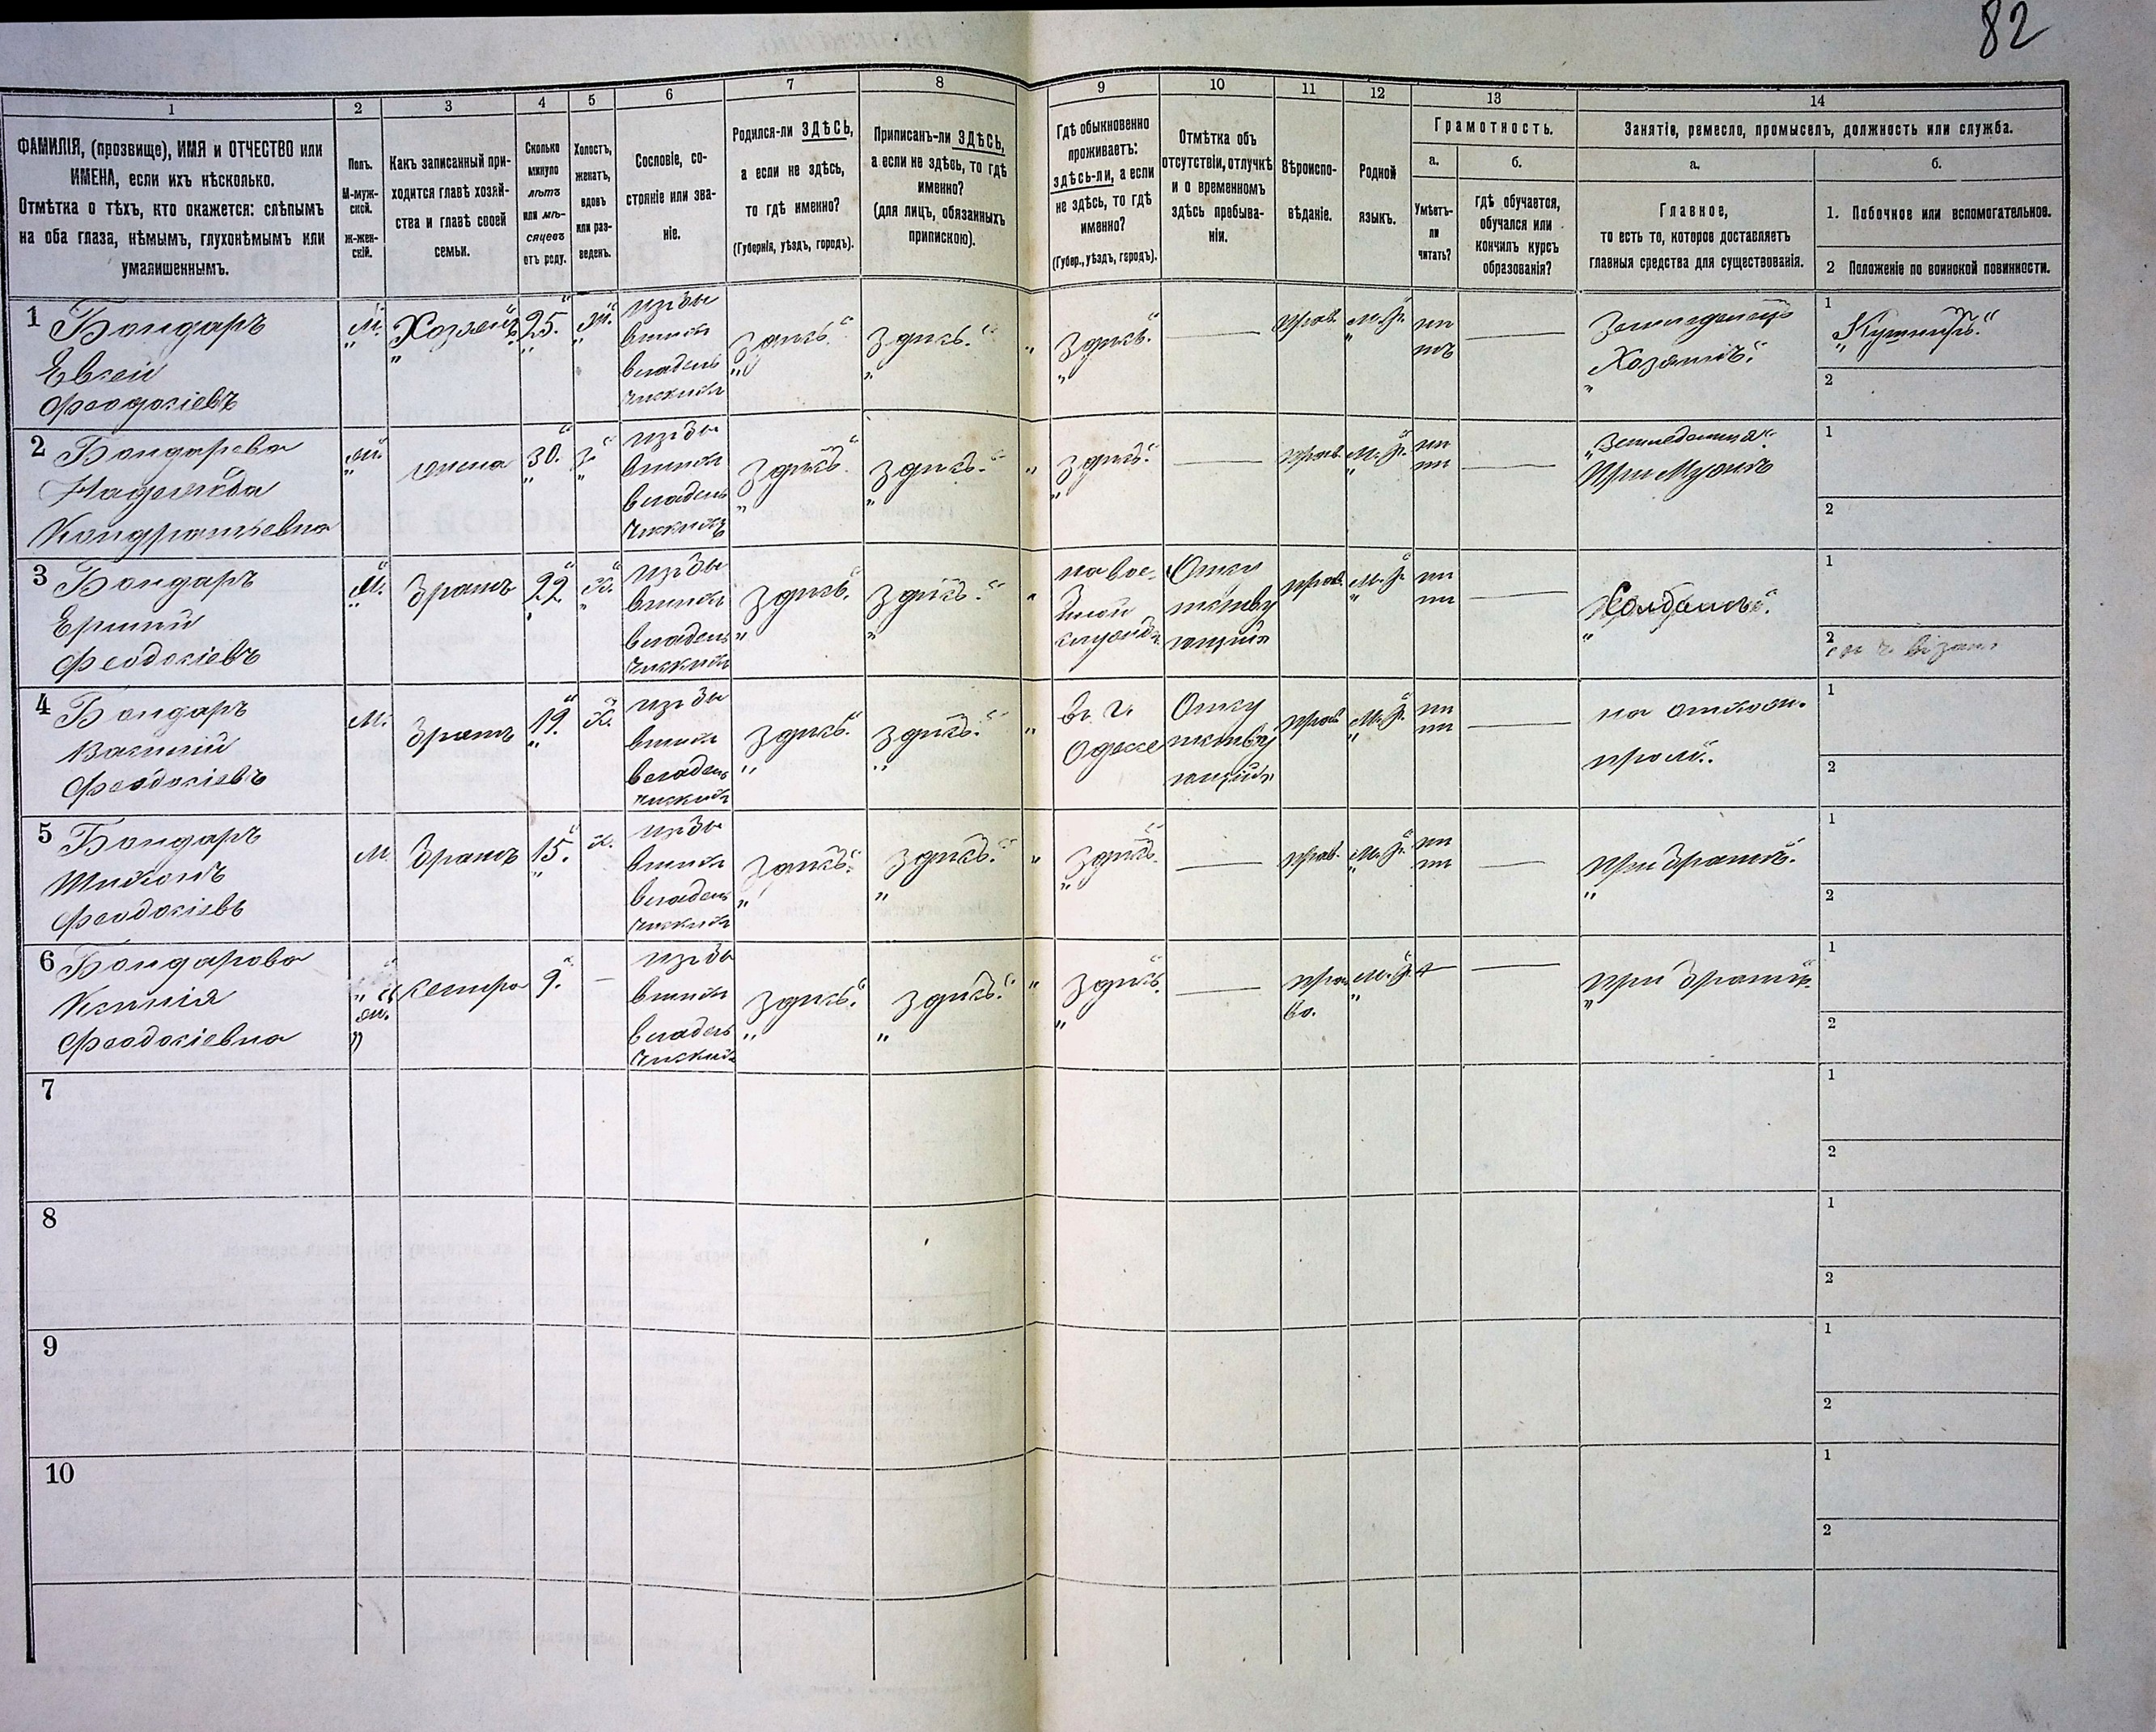 82
1 2 3 4 5 6 7 8 9 10 11 12 13 14
ФАМИЛІЯ, (прозвище), ИМЯ и ОТЧЕСТВО или
ИМЕНА, если ихъ нѣсколько.
Отмѣтка о тѣхъ, кто окажется: слѣпымъ
на оба глаза, нѣмымъ, глухонѣмымъ или
умалишеннымъ.
Полъ.
М-муж-
ской.
ж-жен-
скій.
Какъ записанный при-
ходится главѣ хозяй-
ства и главѣ своей
семьи.
Сколько
минуло
лѣтъ
или мѣ-
сяцевъ
отъ роду.
Холостъ,
женатъ,
вдовъ
или раз-
веденъ.
Сословіе, со-
стояніе или зва-
ніе.
Родился-ли ЗДѢСЬ,
а если не здѣсь,
то гдѣ именно?
(Губернія, уѣздъ, городъ).
Приписанъ-ли ЗДѢСЬ,
а если не здѣсь, то гдѣ
именно?
(для лицъ, обязанныхъ
припискою).
Гдѣ обыкновенно
проживаетъ:
здѣсь-ли, а если
не здѣсь, то гдѣ
именно?
(Губер., уѣздъ, городъ).
Отмѣтка объ
отсутствіи, отлучкѣ
и о временномъ
здѣсь пребыва-
ніи.
Вѣроиспо-
вѣданіе.
Родной
языкъ.
Грамотность.
а.
Умѣетъ-
ли
читать?
б.
гдѣ обучается,
обучался или
кончилъ курсъ
образованія?
Занятіе, ремесло, промыселъ, должность или служба.
а.
Главное,
то есть то, которое доставляетъ
главныя средства для существованія.
б.
1. Побочное или вспомогательное.
2 Положеніе по воинской повинности.
1 Бондаръ
Евсей
Феодосіевъ
М.
Хозяинъ
25.
изъ бы
вших
владель
ческихъ
здесь.
здесь.
здесь.
прав.
М. Р.
нѣ
тъ
Земледелецъ
Хозяинъ.
1
2
2 Бондарева
Надежда
Кондратьевна
жена
30.
З.
изъ бы
вших
владель
ческихъ
здесь.
здесь.
здесь.
прав.
М. Р.
1
2
3 Бондаръ
Феодосіевъ
М.
Братъ
22.
Х.
изъ бы
вших
владель
ческихъ
здесь.
здесь.
на вое-
нной
службе
Отсу
тству
ющий
прав.
М. Р.
Солдатъ.
1
2
4 Бондаръ
Василий
Феодосіевъ
М.
Братъ
19.
Х.
изъ бы
вших
владель
ческихъ
здесь.
здесь.
въ г.
Одессе
Отсу
тству
ющий
прав
М. Р.
1
2
5 Бондаръ
Тихонъ
Феодосіевъ
М.
Братъ
15.
Х.
изъ бы
вших
владель
ческихъ
здесь.
здесь.
здесь.
прав.
М. Р.
при братѣ.
1
2
6 Бондарова
Ксенія
Феодосіевна
ж.
сестра
9.
изъ бы
вших
владель
ческихъ
здесь.
здесь.
здесь.
пра
во.
М. Р.
при братѣ.
1
2
7
1
2
8
1
2
9
1
2
10
1
2